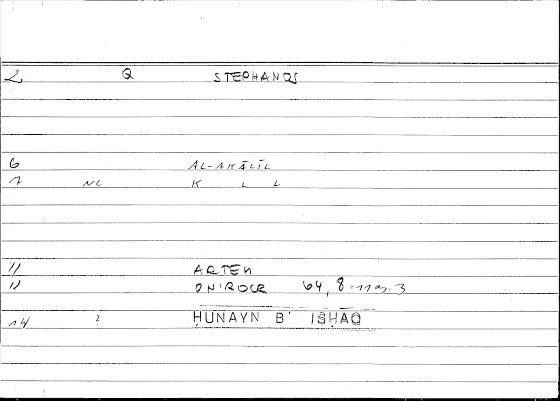 2 Q STEPHANOS
6 AL-AKĀLĪL
7 NL K L L
11 ARTEM
11 ONIROCR 64, 8
14 ? ḤUNAYN B' ISḤĀQ